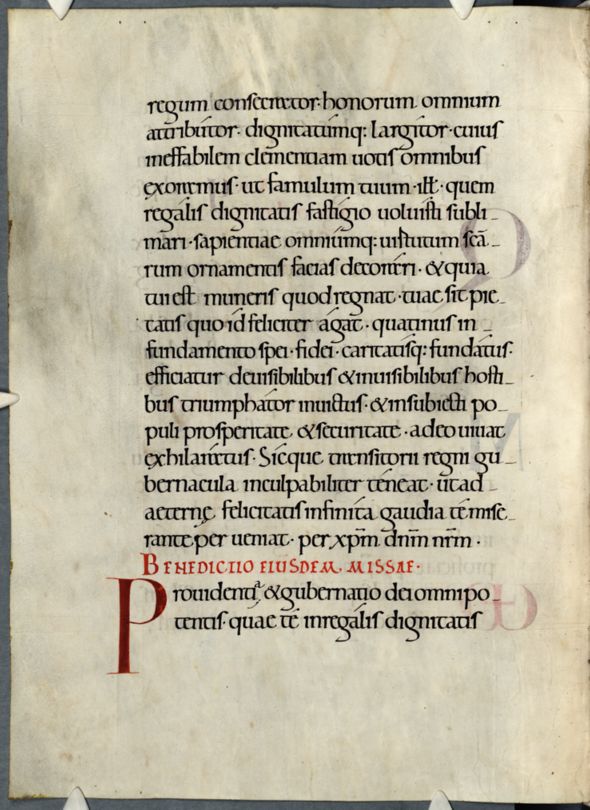 regum consecrator · honorum omnium
attributor · dignitatumq: largitor · cuius
ineffabilem clementiam uotis omnibus
exoramus · ut famulum tuum · ill̃ · quem
regalis dignitatis fastigio uoluisti subli-
mari · sapientiae omniumq: uirtutum scā-
rum ornamentis facias decorari · & quia
tui est muneris quod regnat · tuae sit pie-
tatis quo id feliciter agat · quatinus in-
fundamento spei · fidei · caritatisq: fundatus ·
efficiatur de uisibilibus & inuisibilibus hosti-
bus triumphator inuictus · & in subiecti po-
puli prosperitate, & securitate · a deo uiuat
exhilaratus · Sicque transitorii regni gu-
bernacula inculpabiliter teneat · ut ad
aeternę felicitatis infinita gaudia te mise-
rante per ueniat · per xp̄m dnm̄ nrm̄ ·
BENEDICTIO EIUSDEM MISSAE ·
Prouidentia & gubernatio dei omnipo-
tentis · quae te in regalis dignitatis